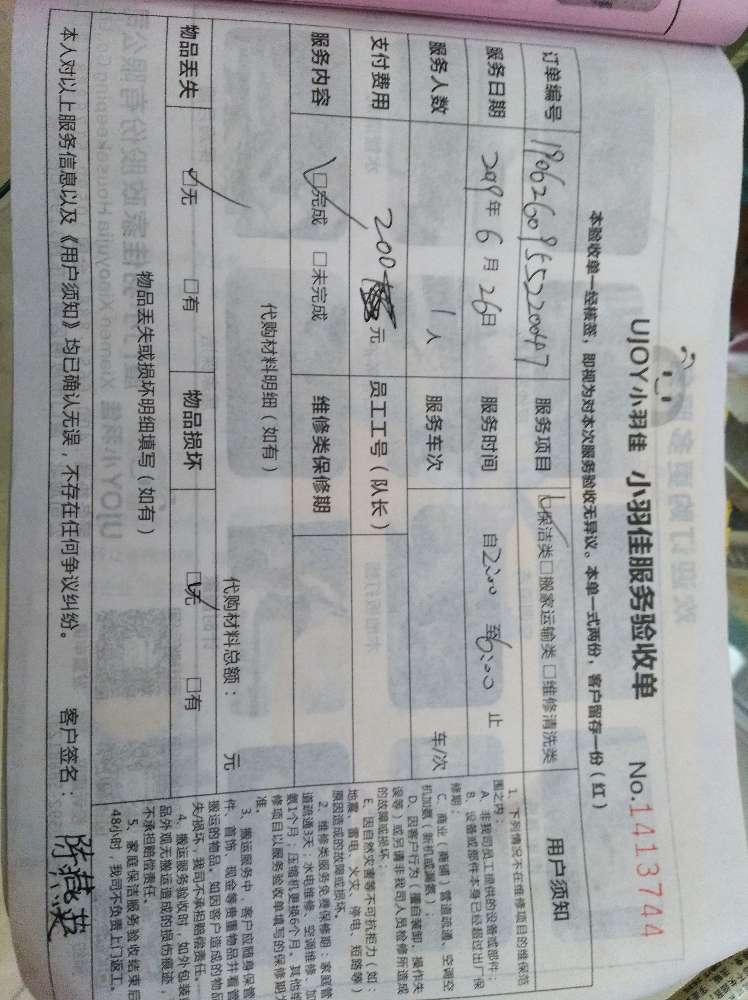 UJOY小羽佳 小羽佳服务验收单 No.1413744
本验收单一经核签，即视为对本次服务验收无异议。本单一式两份，客户留存一份（红）
订单编号 服务项目 □保洁类□搬家运输类□维修清洗类
服务日期 2019年6月26日 服务时间 自2:00 至6:00 止
服务人数 1人 服务车次 车/次
支付费用 200 元 员工工号（队长）
服务内容 □完成 □未完成 维修类保修期
代购材料明细（如有）
代购材料总额： 元
物品丢失 □无 □有 物品损坏 □无 □有
物品丢失或损坏明细填写（如有）
本人对以上服务信息以及《用户须知》均已确认无误，不存在任何争议纠纷。 客户签名：
用户须知
1、下列情况不在维修项目的维保范
围之内：
A、非我司员工提供的设备或部件；
B、设备或部件本身已经超过出厂保
修期；
C、商业（商铺）管道疏通，空调空
机加氨（新机或漏氨）；
D、因客户行为（擅自装卸，操作失
误等）或另请非我司人员检修所造成
的故障或损坏；
E、因自然灾害等不可抗拒力（如：
地震、雷电、火灾、停电、短路等）
原因造成的故障或损坏。
2、维修类服务免费保修期：家庭管
道疏通3天；水电维修、空调维修、加
氨1个月；压缩机更换6个月，其他维
修项目以服务验收单填写的保修期为
准。
3、搬运服务中，客户应随身保管
件、首饰、现金等贵重物品并看管
搬运的物品。如因客户造成的物品
失/损坏，我司不承担赔偿责任。
4、搬运服务验收时，如外包装
品外观无搬运造成的损伤痕迹，
不承担赔偿责任。
5、家庭保洁服务验收结束后
48小时，我司不负责上门返工。